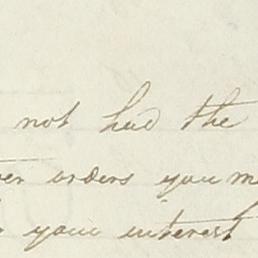 not had the
er orders you m
your interest